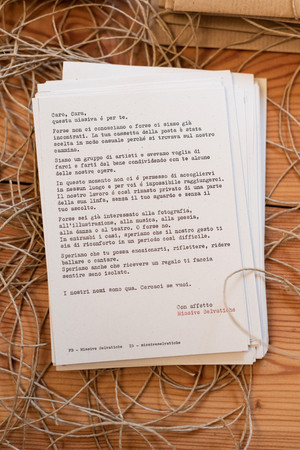 Caro, Cara,
questa missiva è per te.
Forse non ci conosciamo o forse ci siamo già
incontrati. La tua cassetta della posta è stata
scelta in modo casuale perché si trovava sul nostro
cammino.
Siamo un gruppo di artisti e avevamo voglia di
farci e farti del bene condividendo con te alcune
delle nostre opere.
In questo momento non ci è permesso di accogliervi
in nessun luogo e per voi è impossibile raggiungerci.
Il nostro lavoro è così rimasto privato di una parte
della sua linfa, senza il tuo sguardo e senza il
tuo ascolto.
Forse sei già interessato alla fotografia,
all'illustrazione, alla musica, alla poesia,
alla danza o al teatro. O forse no.
In entrambi i casi, speriamo che il nostro gesto ti
sia di riconforto in un periodo così difficile.
Speriamo che tu possa emozionarti, riflettere, ridere
ballare o cantare.
Speriamo anche che ricevere un regalo ti faccia
sentire meno isolato.
I nostri nomi sono qua. Cercaci se vuoi.
Con affetto
Missive Selvatiche
FB - Missive Selvatiche IG - missiveselvatiche